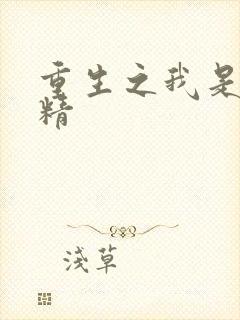 重生之我是
精
浅草